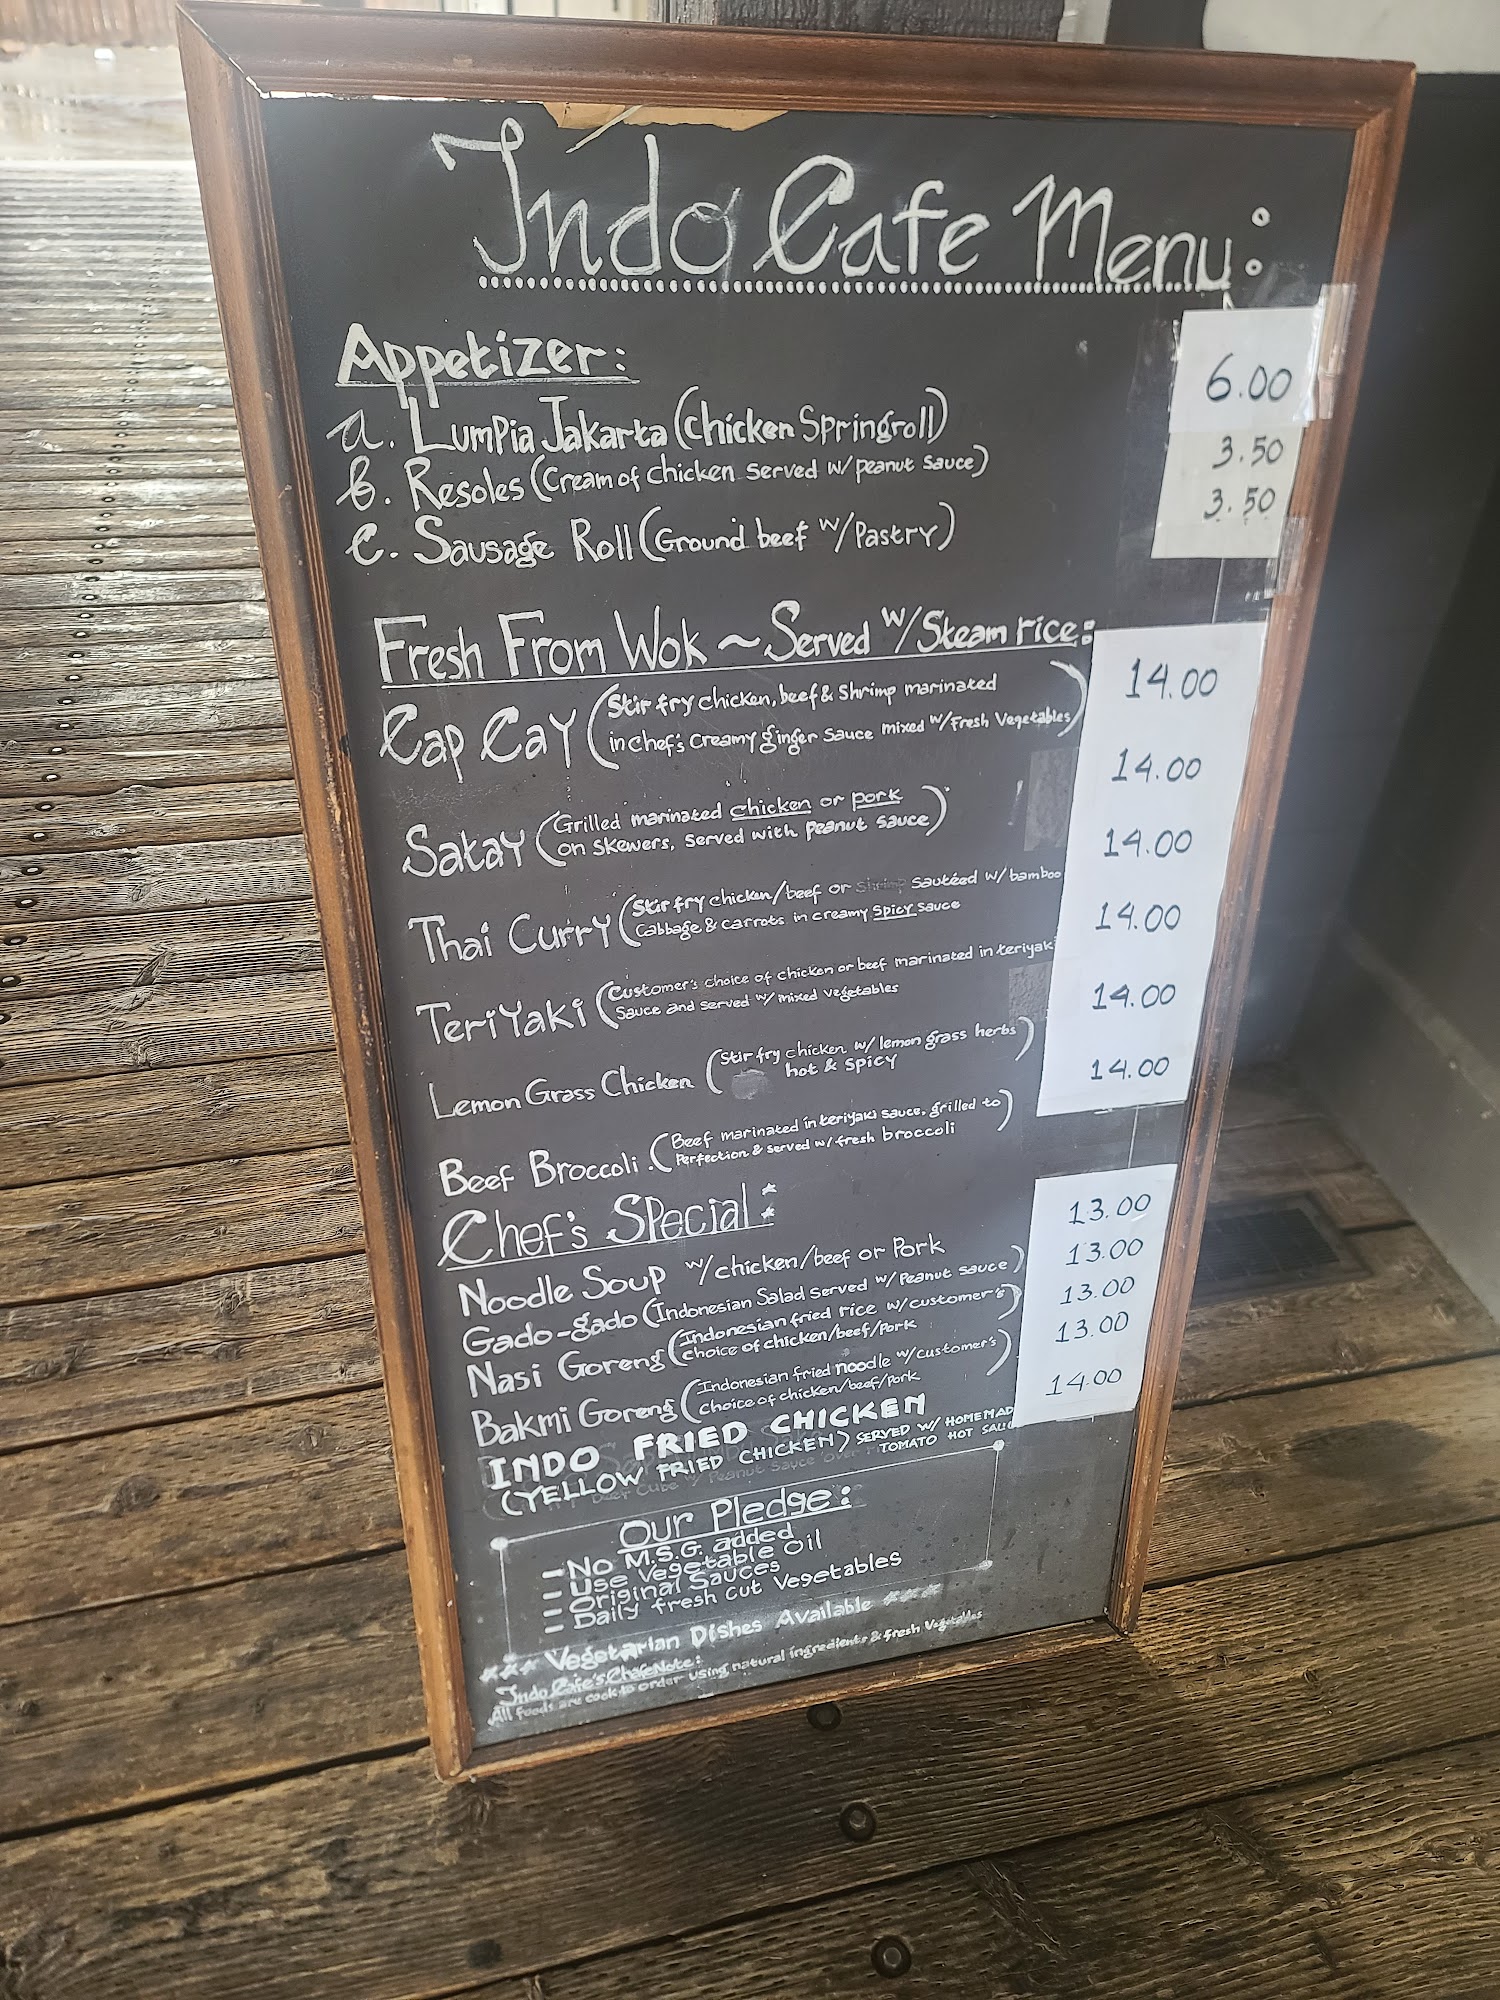 Indo Cafe Menu:
Appetizer:
a. Lumpia Jakarta (Chicken Springroll) 6.00
b. Resoles (Cream of Chicken Served w/ peanut sauce) 3.50
c. Sausage Roll (Ground beef w/ Pastry) 3.50
Fresh From Wok ~ Served w/ Steam rice:
Cap Cay (Stir fry chicken, beef & Shrimp marinated 14.00
in chef's creamy ginger sauce mixed w/ Fresh Vegetables)
Satay (Grilled marinated chicken or pork 14.00
on skewers, served with peanut sauce)
Thai Curry (Stir fry chicken/beef or shrimp sautéed w/ bamboo 14.00
Cabbage & carrots in creamy spicy sauce
TeriYaki (Customer's choice of chicken or beef marinated in teriyaki 14.00
Sauce and served w/ mixed vegetables
Lemon Grass Chicken (Stir fry chicken w/ lemon grass herbs) 14.00
hot & spicy
Beef Broccoli. (Beef marinated in teriyaki sauce, grilled to) 14.00
Perfection & served w/ fresh broccoli
Chef's Special:
Noodle Soup w/ chicken/beef or Pork 13.00
Gado-gado (Indonesian Salad served w/ Peanut sauce) 13.00
Nasi Goreng (Indonesian fried rice w/ customer's) 13.00
choice of chicken/beef/Pork
Bakmi Goreng (Indonesian fried noodle w/ customer's) 13.00
choice of chicken/beef/pork
INDO FRIED CHICKEN 14.00
(YELLOW FRIED CHICKEN) SERVED W/ HOMEMAD
TOMATO HOT
Our Pledge:
- No M.S.G. added
- Use Vegetable Oil
- Original Sauces
- Daily fresh cut Vegetables
*** Vegetarian Dishes Available ***
Indo Cafe's Note:
All foods are cook to order using natural ingredients & fresh Vegetables